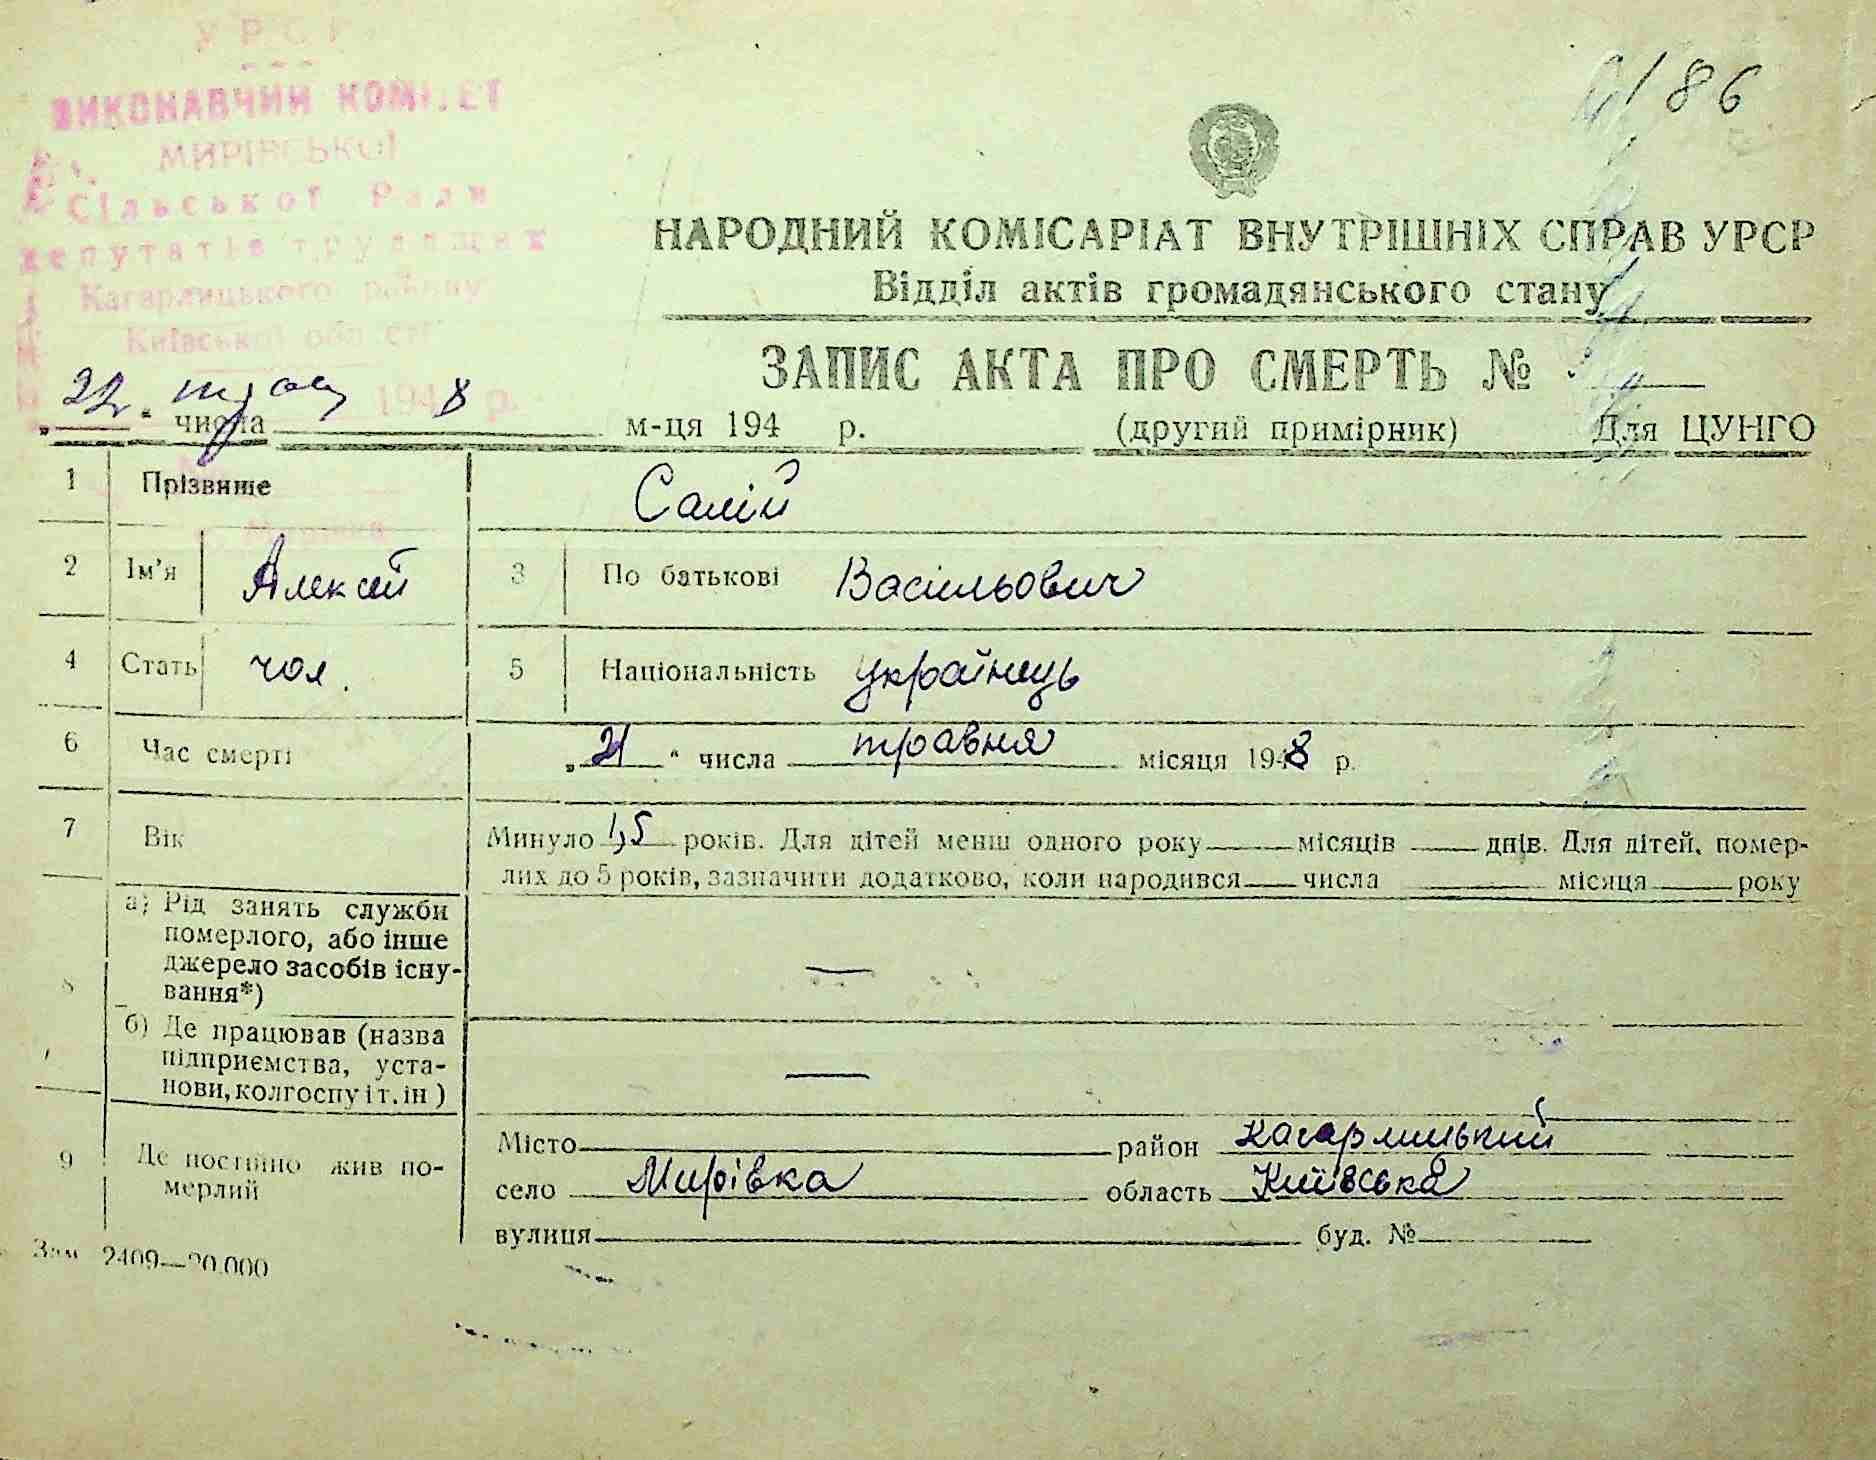 УРСР
ВИКОНАВЧИЙ КОМІТЕТ
МИРІВСЬКОЇ
Сільської Ради
депутатів трудящих
Кагарлицького району
Київської області
186
НАРОДНИЙ КОМІСАРІАТ ВНУТРІШНІХ СПРАВ УРСР
Відділ актів громадянського стану
ЗАПИС АКТА ПРО СМЕРТЬ №
1948 р.
„22“ числа м-ця 194 р. (другий примірник) Для ЦУНГО
1 Прізвище Салій
2 Ім'я Алексей 3 По батькові Васільович
4 Стать чол. 5 Національність українець
6 Час смерті „21“ числа травня місяця 1948 р.
7 Вік Минуло 1,5 років. Для дітей менш одного року місяців днів. Для дітей, помер-
лих до 5 років, зазначити додатково, коли народився числа місяця року
8 а) Рід занять служби
померлого, або інше
джерело засобів існу-
вання*) —
б) Де працював (назва
підприємства, уста-
нови, колгоспу і т. ін) —
9 Де постійно жив по-
мерлий
Місто район Кагарлицький
село Мирівка область Київська
вулиця буд. №
Зам 2409—20.000